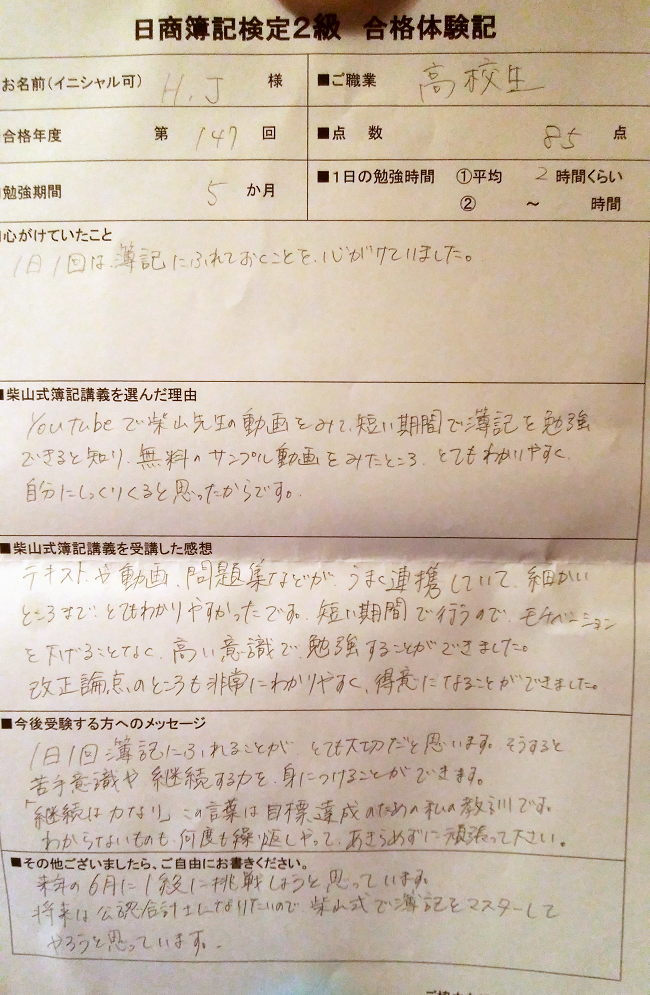 日商簿記検定2級 合格体験記
お名前(イニシャル可) H.J 様 ■ご職業 高校生
合格年度 第 147 回 ■点 数 85 点
勉強期間 5 か月 ■1日の勉強時間 ①平均 2 時間くらい
② ～ 時間
心がけていたこと
1日1回は、簿記にふれておくことを、心がけていました。
■柴山式簿記講義を選んだ理由
Youtubeで柴山先生の動画をみて、短い期間で簿記を勉強
できると知り、無料のサンプル動画をみたところ、とてもわかりやすく、
自分にしっくりくると思ったからです。
■柴山式簿記講義を受講した感想
テキストや動画、問題集などが、うまく連携していて、細かい
ところまで、とてもわかりやすかったです。短い期間で行うので、モチベーション
を下げることなく、高い意識で勉強することができました。
改正論点のところも非常にわかりやすく、得意になることができました。
■今後受験する方へのメッセージ
1日1回簿記にふれることが、とても大切だと思います。そうすると
苦手意識や継続する力を、身につけることができます。
「継続は力なり」この言葉は目標達成のための私の教訓です。
わからないものも、何度も繰り返しやって、あきらめずに頑張って下さい。
■その他ございましたら、ご自由にお書きください。
来年の6月に1級に挑戦しようと思っています。
将来は公認会計士になりたいので、柴山式で簿記をマスターして
やろうと思っています。